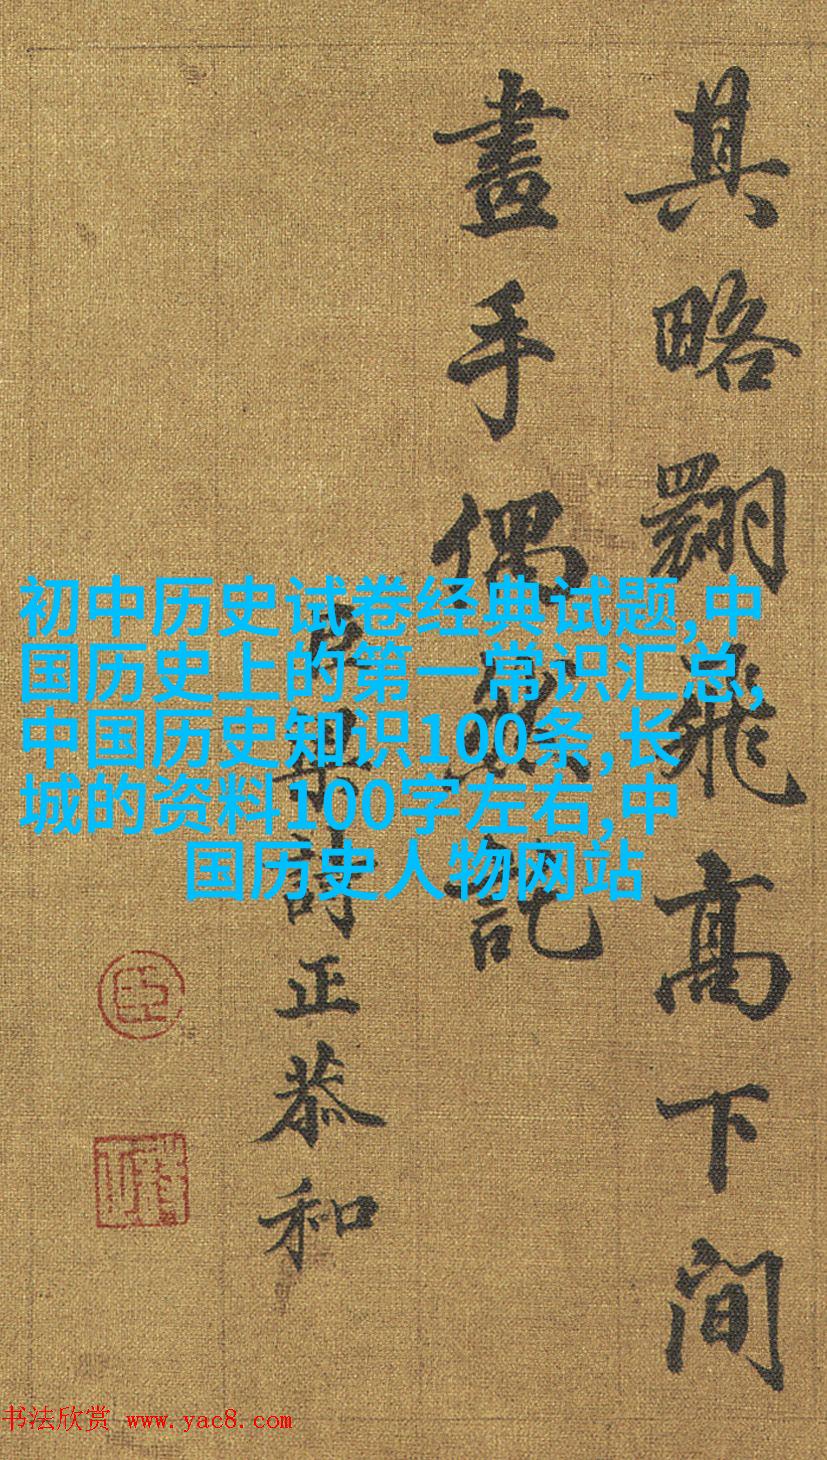 其略翾飛高下間
畫手偶然記
臣梁詩正恭和
臣
初中历史试卷经典试题,中
国历史上的第一常识汇总,
中国历史知识100条,长
城的资料100字左右,中
国历史人物网站
书法欣赏 www.yac8.com